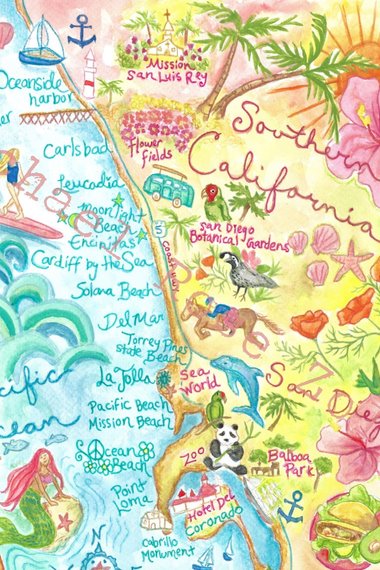 Mission
San Luis Rey
Oceanside
harbor
er
Southern
California
Carlsbad
flower
fields
Leucadia
moonlight
Beach
Encinitas
San Diego
Botanical Gardens
5
Coast Hwy
Cardiff by the Sea
Solana Beach
Del Mar
Torrey Pines
State Beach
La Jolla
Sea
World
San Die
cific
cean
Pacific Beach
Mission Beach
Ocean
Beach
Zoo
Balboa
Park
Point
Loma
Hotel Del
Coronado
Cabrillo
Monument
N